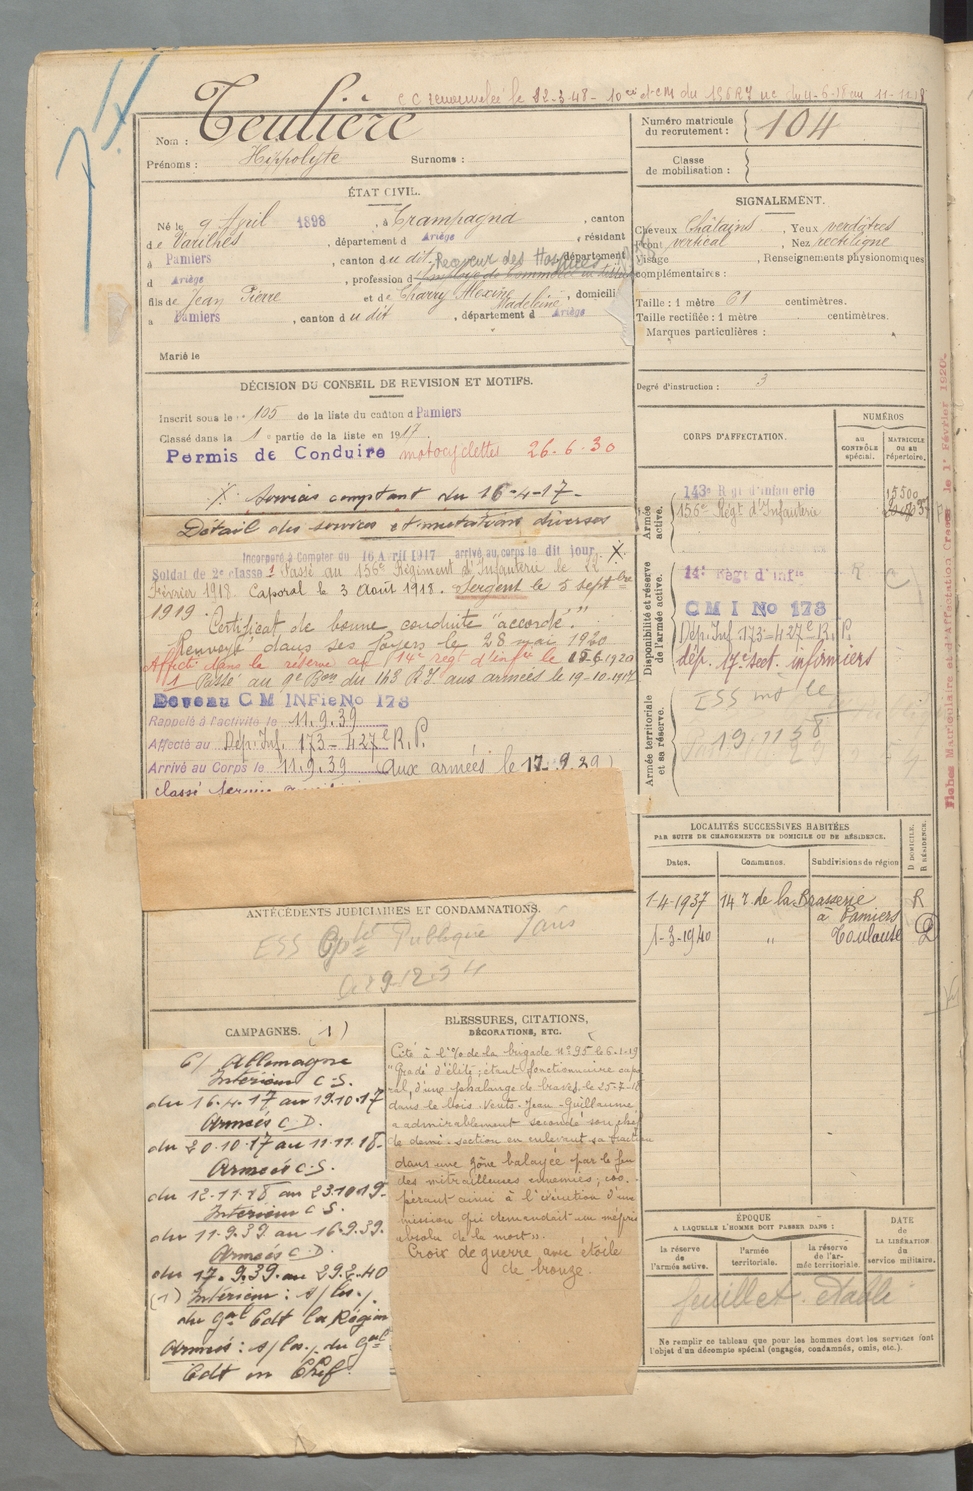 C C renouvelée le 22-3-48 - 10 cie et CM du 156 RI UC du 4-6-18 au 11-11-18
74
Nom : Teulière
Prénoms : Hippolyte Surnoms :
ÉTAT CIVIL.
Né le 9 Avril 1898, à Crampagna, canton
de Varilhes, département d Ariège, résidant
à Pamiers, canton du dit, département
Receveur des Hospices
d Ariège, profession d
fils de Jean Pierre et de Charry Alexine Madeleine, domiciliés
à Pamiers, canton du dit, département d Ariège
Marié le
DÉCISION DU CONSEIL DE REVISION ET MOTIFS.
Inscrit sous le n° 105 de la liste du canton d Pamiers
Classé dans la 1e partie de la liste en 1917
Permis de Conduire motocyclettes 26-6-30
X Services comptant du 16-4-17-
Détail des services et mutations diverses
Incorporé à Compter du 16 Avril 1917 arrivé au corps le dit jour. X
Soldat de 2e classe 1 Passé au 156e Régiment d'Infanterie le 22
Février 1918. Caporal le 3 Août 1918. Sergent le 5 septbre
1919. Certificat de bonne conduite "accordé".
Renvoyé dans ses foyers le 28 mai 1920
Affecté dans la réserve au 14e regt d'infie le 15.6.1920
1 Passé au 9e Bon du 143 R.I. aux armées le 19-10-1917
Devenu C M INFie No 173
Rappelé à l'activité le 11.9.39
Affecté au Dép. Inf. 173-427e R.P.
Arrivé au Corps le 11.9.39 (aux armées le 17.9.39)
ANTÉCÉDENTS JUDICIAIRES ET CONDAMNATIONS.
ESS Publique Paris
CAMPAGNES. (1)
C/ Allemagne
Intérieur C-S.
du 16.4.17 au 19.10.17
Armées C.D.
du 20.10.17 au 11.11.18-
Armées C.S.
du 12-11-18 au 23.10.19-
Intérieur C S.
du 11.9.39 au 16.9.39.
Armées C.D.
du 17.9.39 au 29.2.40
(1) Intérieur : s/ les /
du Gal Cdt la Région
Armées : s/ les /. du Gal
Cdt en Chef
BLESSURES, CITATIONS,
DÉCORATIONS, ETC.
Cité à l'% de la brigade n° 95 le 6-1-19
"Gradé d'élite; étant fonctionnaire capo-
ral, d'une phalange de braves, le 25-7-18
dans le bois Vents-Jean-Guillaume
a admirablement secondé son chef
de demi-section en enlevant sa fraction
dans une zône balayée par le feu
des mitrailleuses ennemies; coo-
pérant ainsi à l'exécution d'une
mission qui demandait un mépris
absolu de la mort".
Croix de guerre avec étoile
de bronze.
Numéro matricule
du recrutement : 104
Classe
de mobilisation :
SIGNALEMENT.
Cheveux Châtains, Yeux verdâtres
Front vertical, Nez rectiligne
Visage, Renseignements physionomiques
complémentaires :
Taille : 1 mètre 61 centimètres.
Taille rectifiée : 1 mètre centimètres.
Marques particulières :
Degré d'instruction : 3
CORPS D'AFFECTATION.
NUMÉROS
au CONTRÔLE spécial.
MATRICULE OU AU répertoire.
Armée active.
143e Régt d'Infanterie 15500
156e Régt d'Infanterie
Disponibilité et réserve de l'armée active.
14e Régt d'Infie R C
C M I No 173
Dép. Inf. 173-427e R.P.
dép. 17e sect. infirmiers
Armée territoriale et sa réserve.
LOCALITÉS SUCCESSIVES HABITÉES
PAR SUITE DE CHANGEMENTS DE DOMICILE OU DE RÉSIDENCE.
Dates. Communes. Subdivisions de région D DOMICILE. R RÉSIDENCE.
1-4-1937 14 r. de la Brasserie R
à Pamiers
1-3-1940 " Toulouse D
ÉPOQUE
A LAQUELLE L'HOMME DOIT PASSER DANS :
DATE
DE
LA LIBÉRATION
du
service militaire.
la réserve de l'armée active.
l'armée territoriale.
la réserve de l'armée territoriale.
feuillet établi
Ne remplir ce tableau que pour les hommes dont les services font
l'objet d'un décompte spécial (engagés, condamnés, omis, etc.).
Fiches Matriculaire et d'Affectation Créées le 1er Février 1920.